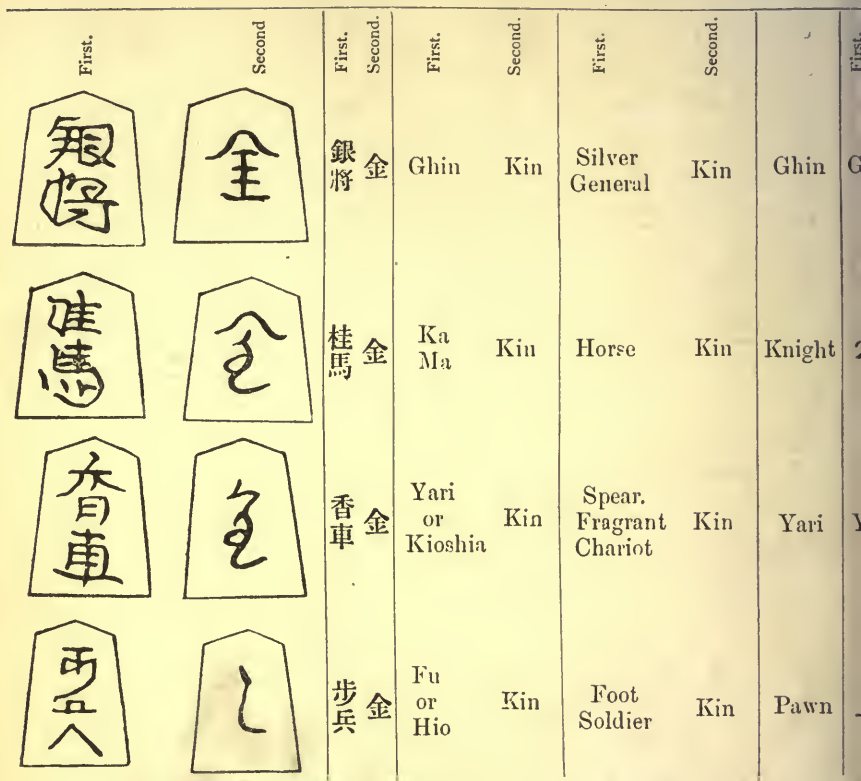 First. Second First. Second. First. Second. First. Second. First.
銀将 金 銀将 金 Ghin Kin Silver General Kin Ghin G
桂馬 金 桂馬 金 Ka Ma Kin Horse Kin Knight 2
香車 金 香車 金 Yari or Kioshia Kin Spear. Fragrant Chariot Kin Yari Y
歩兵 步兵 金 Fu or Hio Kin Foot Soldier Kin Pawn